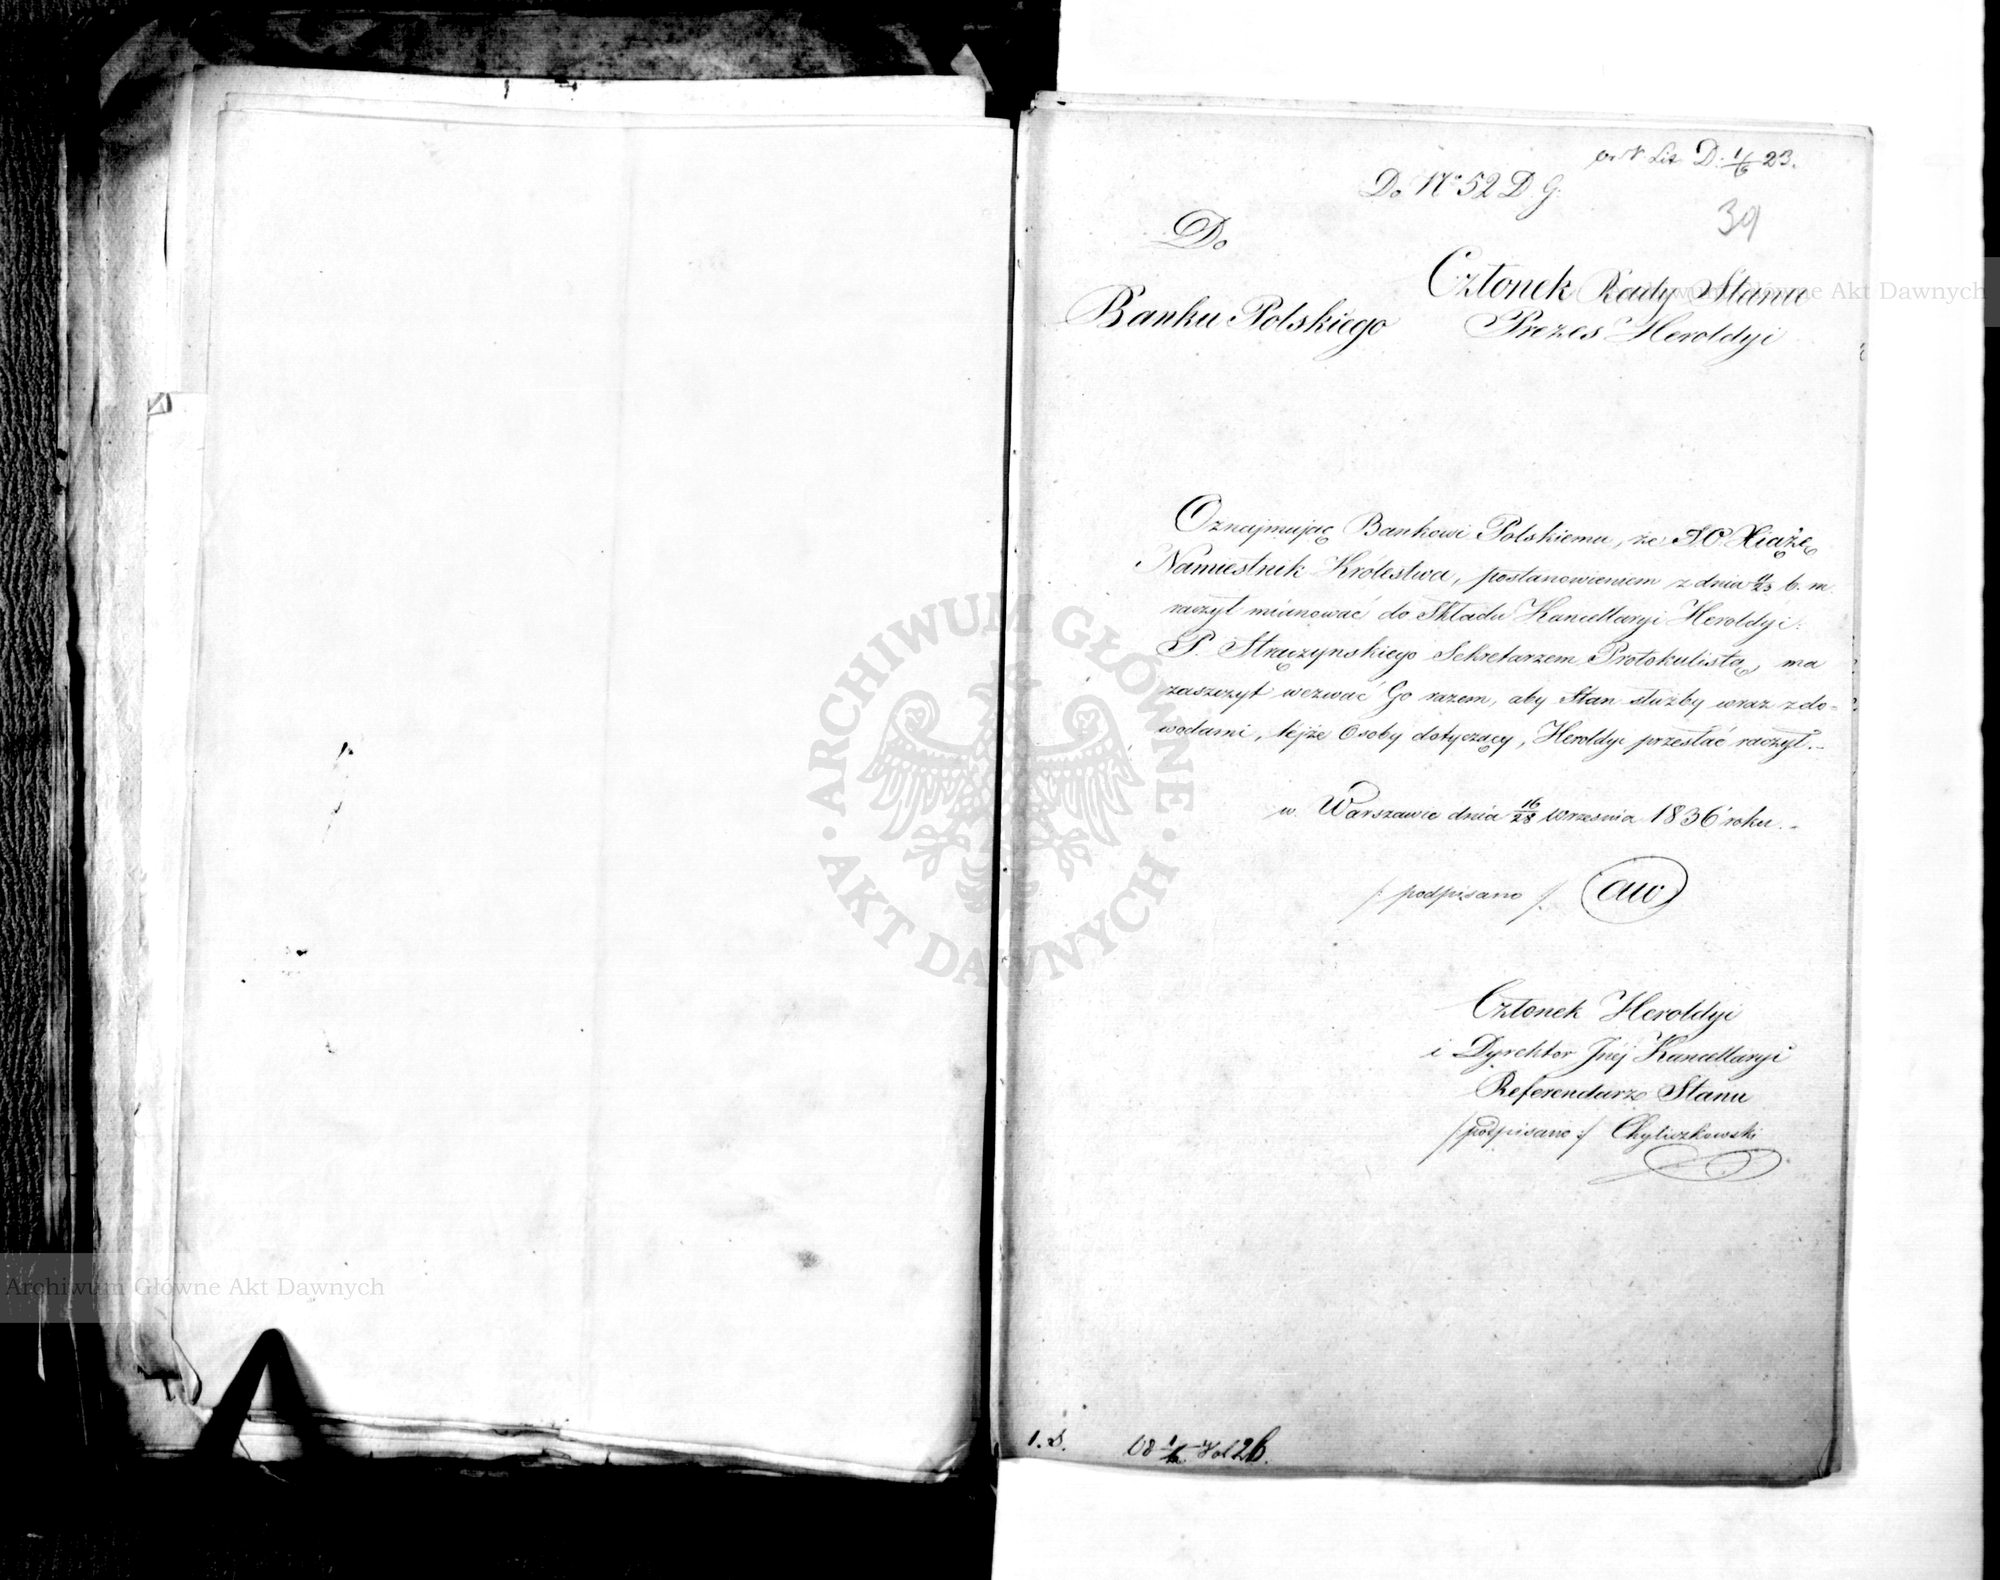 Lit. D. 1/6 23.
Do No 52 D. G.
39
Do
Banku Polskiego
Członek Rady Stanu
Prezes Heroldyi
Oznajmując Bankowi Polskiemu, że J.O. Xiążę
Namiestnik Królestwa, postanowieniem z dnia 11/23 b. m.
raczył mianować do Składu Kancellaryi Heroldyi:
P. Strużyńskiego Sekretarzem Protokulistą, ma
zaszczyt wezwać Go razem, aby Stan służby wraz z do-
wodami, tejże Osoby dotyczący, Heroldyi przesłać raczył.
w Warszawie dnia 16/28 Września 1836 roku.
/: podpisano :/
Członek Heroldyi
i Dyrektor Jnéj Kancellaryi
Referendarz Stanu
/: podpisano :/ Chyliczkowski
1. S.
Vol 26.
ARCHIWUM GŁÓWNE
AKT DAWNYCH
Archiwum Główne Akt Dawnych
Archiwum Główne Akt Dawnych